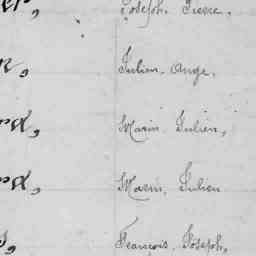 Joseph Pierre,
Julien Ange,
Marin Julien,
Marin, Julien
François Joseph,